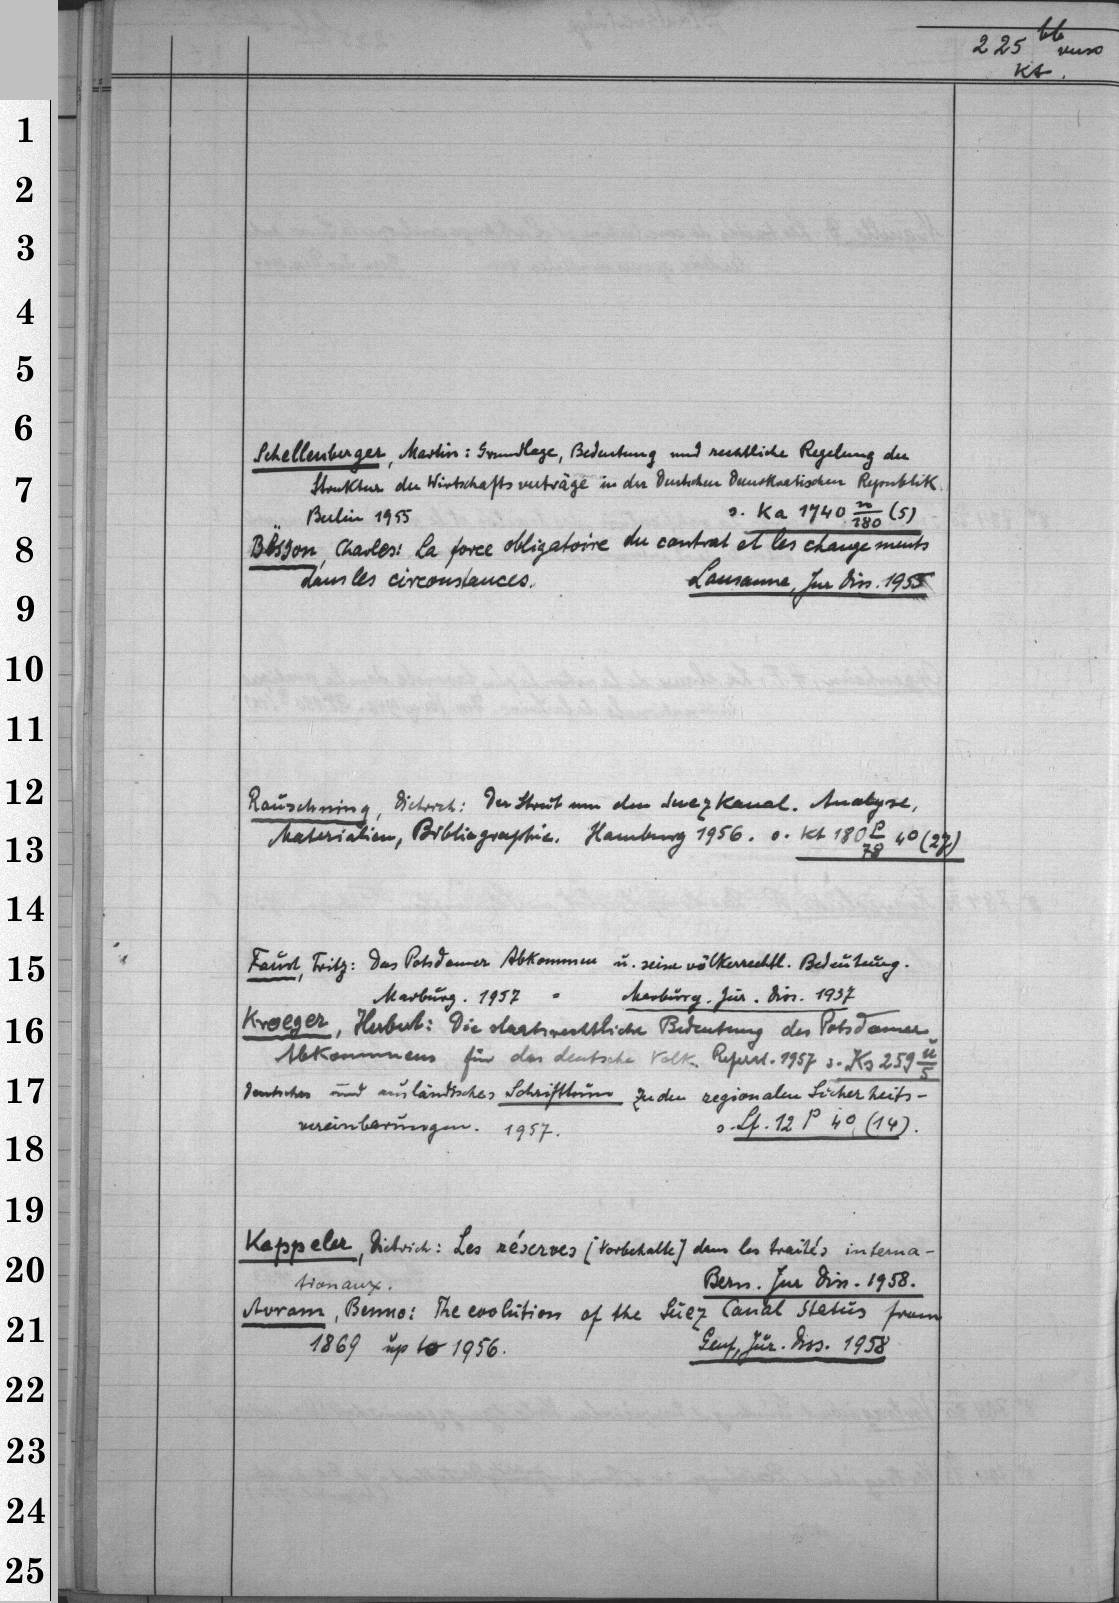 225 bb verso
Kt.
1
2
3
4
5
6
Schellenberger, Martin: Grundlage, Bedeutung und rechtliche Regelung der
7
Struktur der Wirtschaftsverträge in der Deutschen Demokratischen Republik.
Berlin 1955 s. Ka 1740 n/180 (5)
8
Besson, Charles: La force obligatoire du contrat et les changements
dans les circonstances. Lausanne, Jur Diss. 1955
9
10
11
12
Rauschning, Dietrich: Der Streit um den Suezkanal. Analyse,
13
Materialien, Bibliographie. Hamburg 1956. s. Kt 180 P/78 4° (27)
14
15
Faust, Fritz: Das Potsdamer Abkommen u. seine völkerrechtl. Bedeutung.
Marburg. 1957 = Marburg. Jur. Diss. 1957
16
Kroeger, Herbert: Die staatsrechtliche Bedeutung des Potsdamer
Abkommens für das deutsche Volk. Referat. 1957 s. Ks 259 u/5
17
Deutsches und ausländisches Schrifttum zu den regionalen Sicherheits-
vereinbarungen. 1957. s. Lf. 12 P 4° (14).
18
19
Kappeler, Dietrich: Les réserves [Vorbehalte] dans les traités interna-
20
tionaux. Bern. Jur Diss. 1958.
21
Avram, Benno: The evolution of the Suez Canal Status from
1869 up to 1956. Genf, Jur. Diss. 1958
22
23
24
25